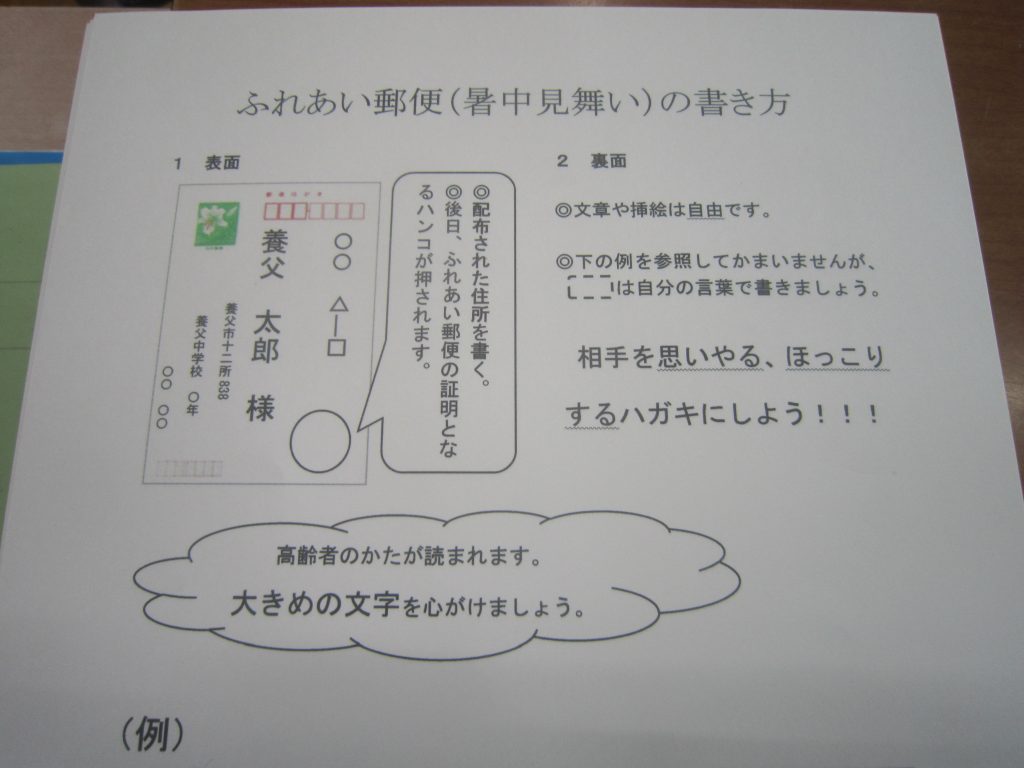 ふれあい郵便（暑中見舞い）の書き方
1　表面
郵便はがき
○○　△ー□
養父　太郎　様
養父市十二所 838
養父中学校　○年
○○　○○
◎配布された住所を書く。
◎後日、ふれあい郵便の証明とな
るハンコが押されます。
2　裏面
◎文章や挿絵は自由です。
◎下の例を参照してかまいませんが、
は自分の言葉で書きましょう。
相手を思いやる、ほっこり
するハガキにしよう！！！
高齢者のかたが読まれます。
大きめの文字を心がけましょう。
（例）